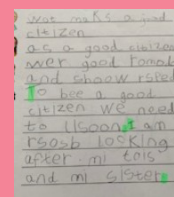 wat maks a good
citizen
as a good citizen
wer good
and shoow rsped
To bee a good
citizen we need
to lisoon I am
rsosb looking
after mi tois
and mi sister.